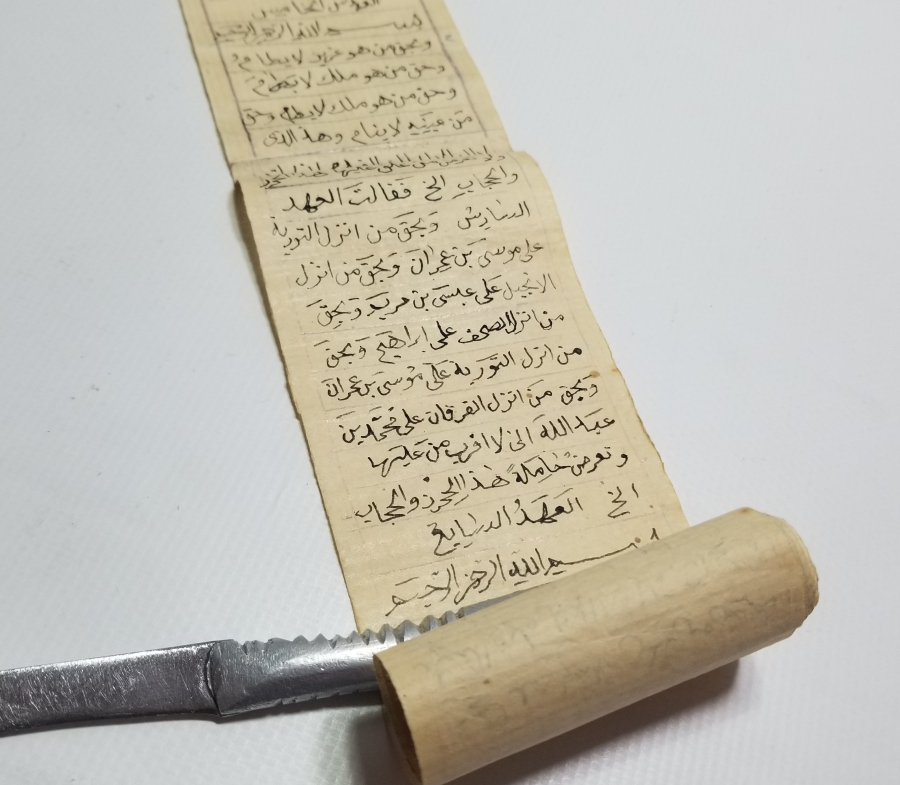 بسم الله الرحمن الرحيم
وبحق من هو عزيز لا يظام
وحق من هو ملك لا يظام
وحق من هو ملك لا يظام وحق
من عينيه لا ينام وهذا الذى
والحجاب الخ فقالت العهد
السادس وبحق من انزل التورية
على موسى بن عمران وبحق من انزل
الانجيل على عيسى بن مريم وبحق
من انزل الصحف على ابراهيم وبحق
من انزل التورية على موسى بن عمران
وبحق من انزل الفرقان على محمد بن
عبد الله انى لا اقرب من عليها
وتعرض حاملة هذ الحرز والحجاب
الخ العهد السابع
بسم الله الرحمن الرحيم